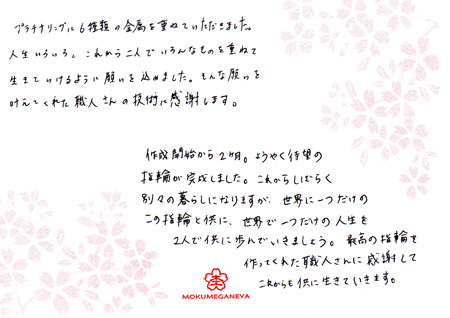 プラチナリングに6種類の金属を重ねていただきました。
人生いろいろ。これから二人でいろんなものを重ねて
生きていけるように願いを込めました。そんな願いを
叶えてくれた職人さんの技術に感謝します。
作成開始から2ヶ月。ようやく待望の
指輪が完成しました。これからしばらく
別々の暮らしになりますが、世界に一つだけの
この指輪と供に、世界で一つだけの人生を
2人で供に歩んでいきましょう。最高の指輪を
作ってくれた職人さんに感謝して
これからも供に生きていきます。
MOKUMEGANEYA